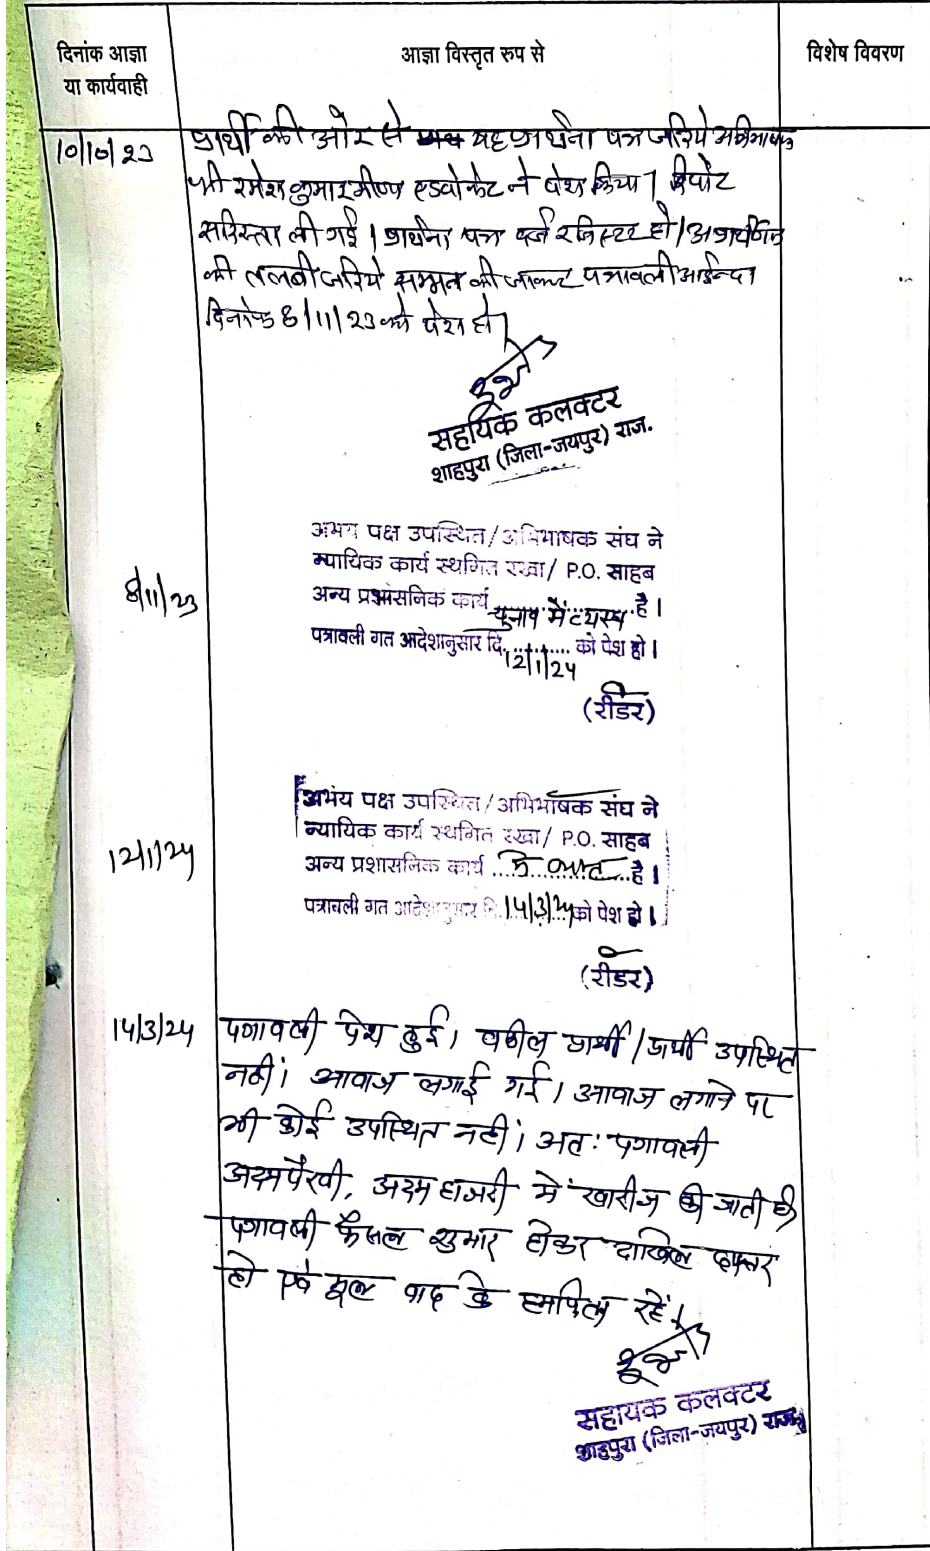 दिनांक आज्ञा
या कार्यवाही
आज्ञा विस्तृत रुप से
विशेष विवरण
10/10/23
प्रार्थी की ओर से यह प्रार्थना पत्र जरिये अभिभाषक
श्री रमेश कुमार मीणा एडवोकेट ने पेश किया। रिपोर्ट
सरिस्ता ली गई। प्रार्थना पत्र दर्ज रजिस्टर हो। अप्रार्थीगण
की तलबी जरिये सम्मन की जाकर पत्रावली आईन्दा
दिनांक 8/11/23 को पेश हो।
सहायक कलक्टर
शाहपुरा (जिला-जयपुर) राज.
8/11/23
अभय पक्ष उपस्थित/अभिभाषक संघ ने
न्यायिक कार्य स्थगित रखा/ P.O. साहब
अन्य प्रशासनिक कार्य चुनाव में व्यस्त है।
पत्रावली गत आदेशानुसार दि. 12/1/24 को पेश हो।
(रीडर)
12/1/24
अभय पक्ष उपस्थित/अभिभाषक संघ ने
न्यायिक कार्य स्थगित रखा/ P.O. साहब
अन्य प्रशासनिक कार्य में व्यस्त है।
पत्रावली गत आदेशानुसार दि. 14/3/24 को पेश हो।
(रीडर)
14/3/24
पत्रावली पेश हुई। वकील प्रार्थी/प्रार्थी उपस्थित
नहीं। आवाज लगाई गई। आवाज लगाने पर
भी कोई उपस्थित नहीं। अतः पत्रावली
अदमपैरवी, अदम हाजरी में खारीज की जाती है।
पत्रावली फैसल शुमार होकर दाखिल दफ्तर
हो एवं मूल वाद के हमफिता रहें।
सहायक कलक्टर
शाहपुरा (जिला-जयपुर) राज.